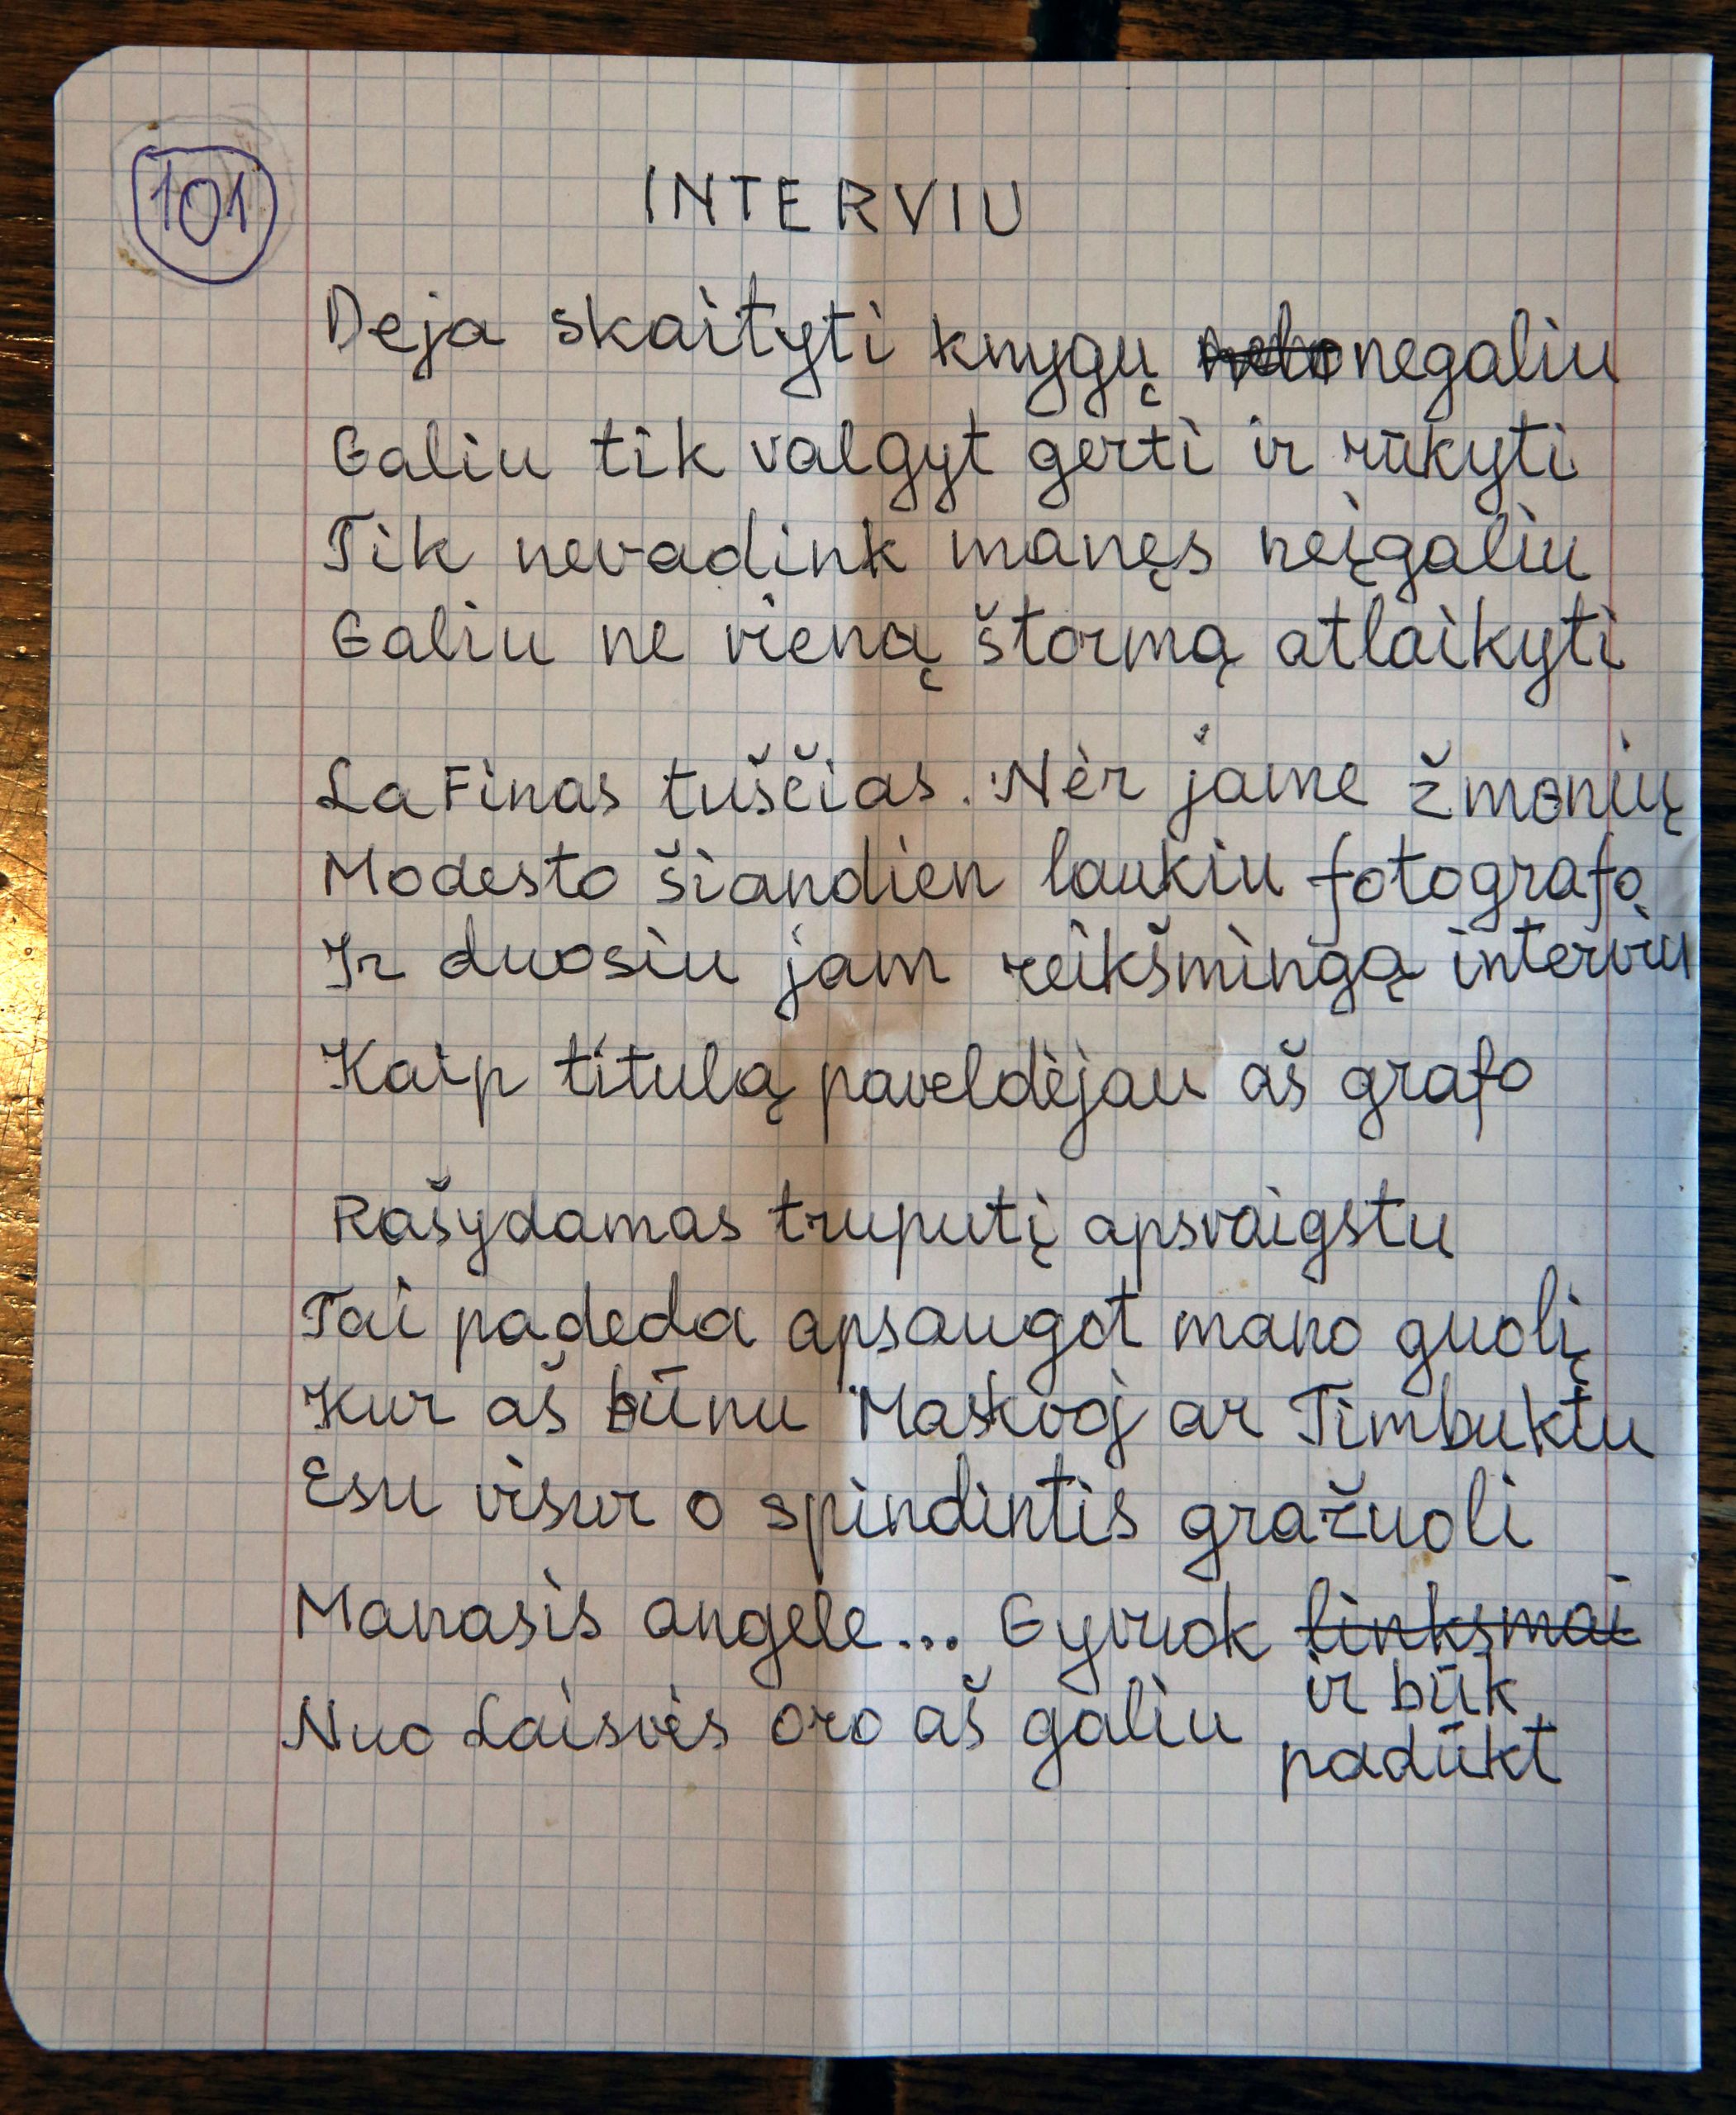 101
INTERVIU
Deja skaityti knygų negaliu
Galiu tik valgyt gerti ir rūkyti
Tik nevadink manęs neįgaliu
Galiu ne vieną štormą atlaikyti
La Finas tuščias. Nėr jame žmonių
Modesto šiandien laukiu fotografo
Ir duosiu jam reikšmingą interviu
Kaip titulą paveldėjau aš grafo
Rašydamas truputį apsvaigstu
Tai padeda apsaugot mano guolį
Kur aš būnu Maskvoj ar Timbuktu
Esu visur o spindintis gražuoli
Manasis angele... Gyvuok linksmai
ir būk
Nuo Laisvės oro aš galiu padūkt